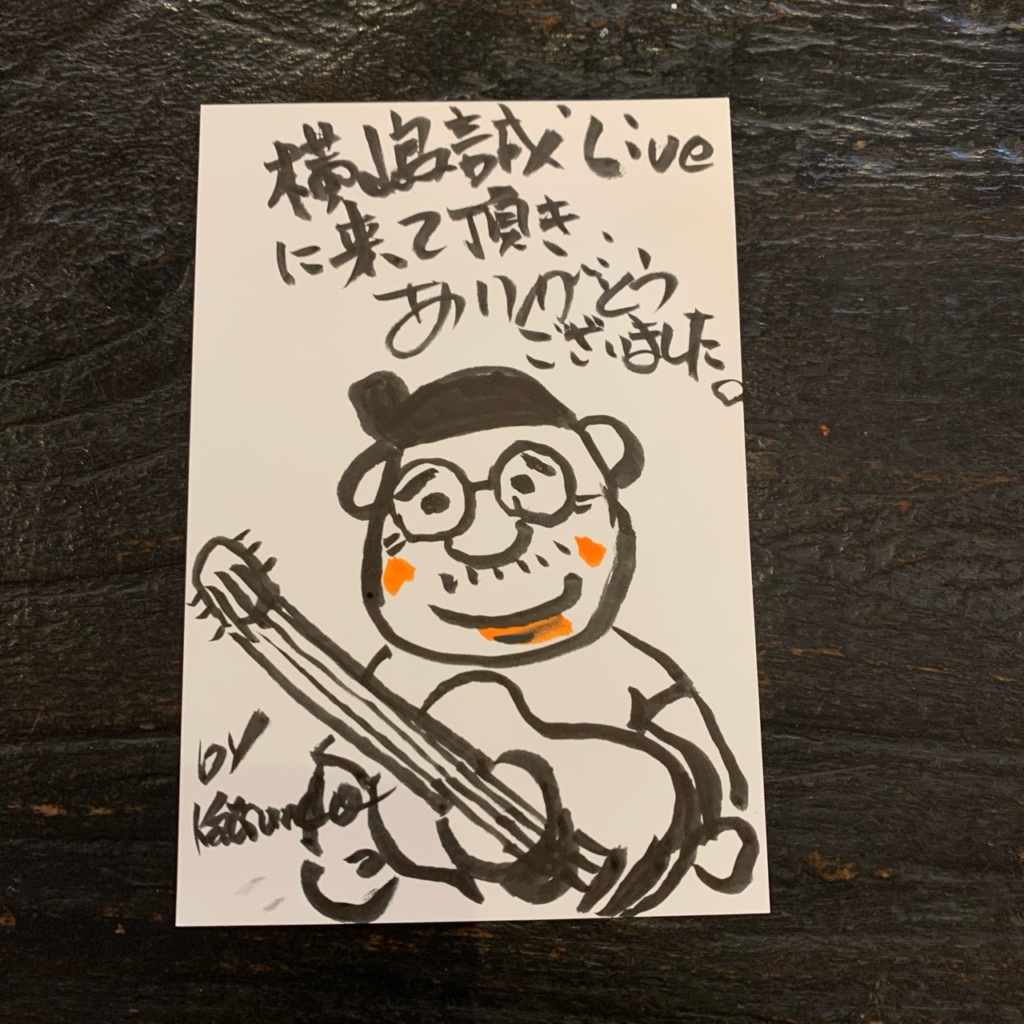 横嶋誠 Live
に来て頂き
ありがとう
ございました。
by